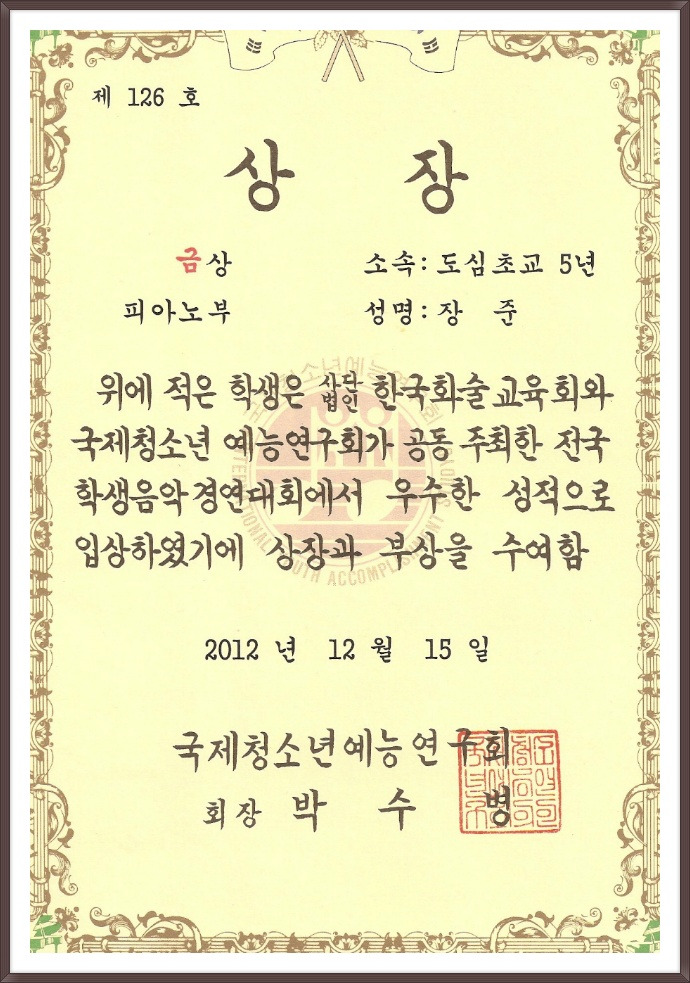 제 126 호
상 장
금상 소속: 도심초교 5년
피아노부 성명: 장 준
위에 적은 학생은 사단법인 한국화술교육회와
국제청소년 예능연구회가 공동 주최한 전국
학생음악경연대회에서 우수한 성적으로
입상하였기에 상장과 부상을 수여함
2012 년 12 월 15 일
국제청소년예능연구회
회장 박 수 병